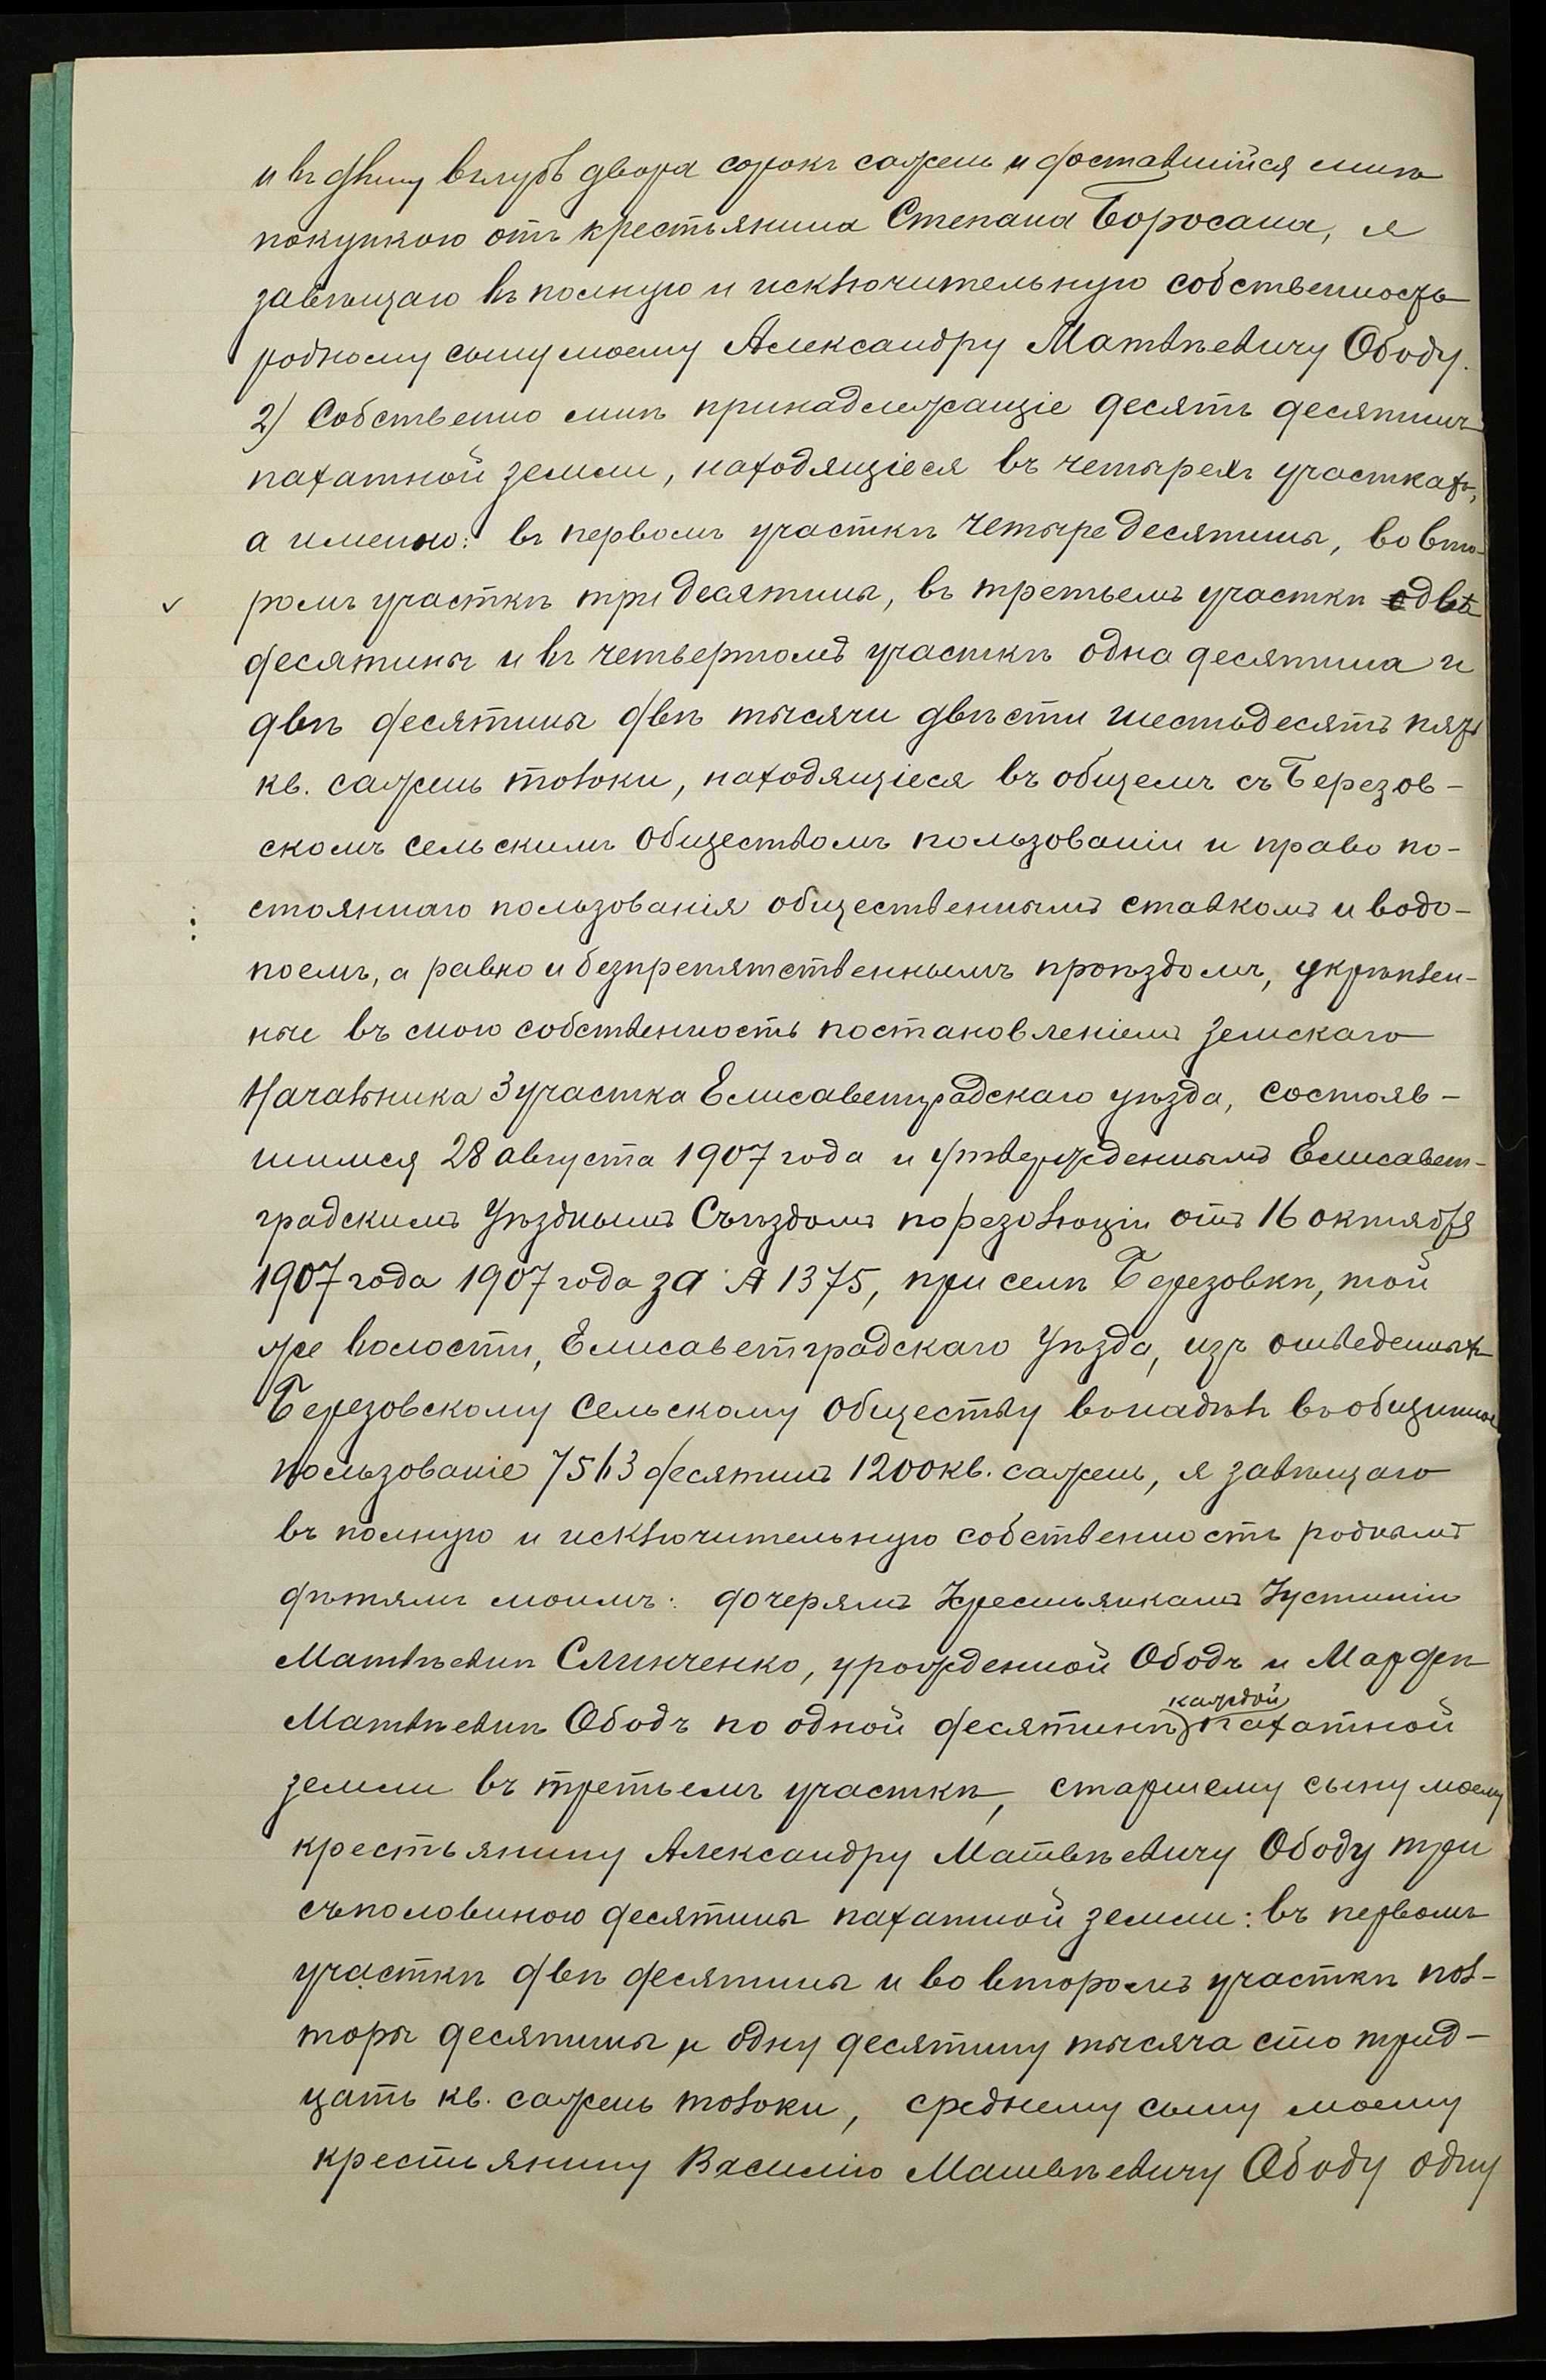 и въ длину вглубь двора сорокъ сажень и доставшійся мнѣ
покупкою отъ крестьянина Степана Боросана, я
завѣщаю въ полную и исключительную собственность
родному сыну моему Александру Матвѣевичу Ободу.
2) Собственно мнѣ принадлежащіе десять десятинъ
пахатной земли, находящіеся въ четырехъ участкахъ,
а именно: въ первомъ участкѣ четыре десятины, во вто-
ромъ участкѣ три десятины, въ третьемъ участкѣ двѣ
десятины и въ четвертомъ участкѣ одна десятина и
двѣ десятины двѣ тысячи двѣсти шестьдесятъ пять
кв. сажень толоки, находящіеся въ общемъ съ Березов-
скомъ сельскимъ обществомъ пользованіи и право по-
стояннаго пользованія общественнымъ ставкомъ и водо-
поемъ, а равно и безпрепятственнымъ проѣздомъ, укрѣплен-
ные въ мою собственность постановленіемъ Земскаго
Начальника 3 участка Елисаветградскаго уѣзда, состояв-
шимся 28 августа 1907 года и утвержденнымъ Елисавет-
градскимъ Уѣзднымъ Съѣздомъ по резолюціи отъ 16 октября
1907 года 1907 года за № 1375, при селѣ Березовкѣ, той
же волости, Елисаветградскаго Уѣзда, изъ отведенныхъ
Березовскому сельскому обществу въ надѣлъ въ общинное
пользованіе 7513 десятинъ 1200 кв. сажень, я завѣщаю
въ полную и исключительную собственность роднымъ
дѣтямъ моимъ: дочерямъ Крестьянкамъ Устиніи
Матвѣевнѣ Слинченко, урожденной Ободъ и Марфѣ
Матвѣевнѣ Ободъ по одной десятинѣ каждой пахатной
земли въ третьемъ участкѣ, старшему сыну моему
крестьянину Александру Матвѣевичу Ободу три
съ половиною десятины пахатной земли: въ первомъ
участкѣ двѣ десятины и во второмъ участкѣ пол-
торы десятины и одну десятину тысяча сто трид-
цать кв. сажень толоки, среднему сыну моему
крестьянину Василію Матвѣевичу Ободу одну